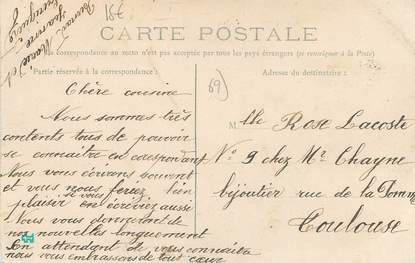 15€
CARTE POSTALE
La correspondance au recto n'est pas acceptée par tous les pays étrangers (se renseigner à la Poste)
Partie réservée à la correspondance.
Adresse du destinataire :
Chère cousine
Nous sommes très
contents tous de pouvoir
se connaître en correspondant
Nous vous écrivons souvent
et vous nous feriez bien
plaisir si vous en écriviez aussi
Nous vous donnerons de
nos nouvelles longuement
En attendant de vous connaître
nous vous embrassons de tout cœur
Marie et
69
Mlle Rose Lacoste
No 9 chez Mr Chayne
bijoutier rue de la Pomme
Toulouse